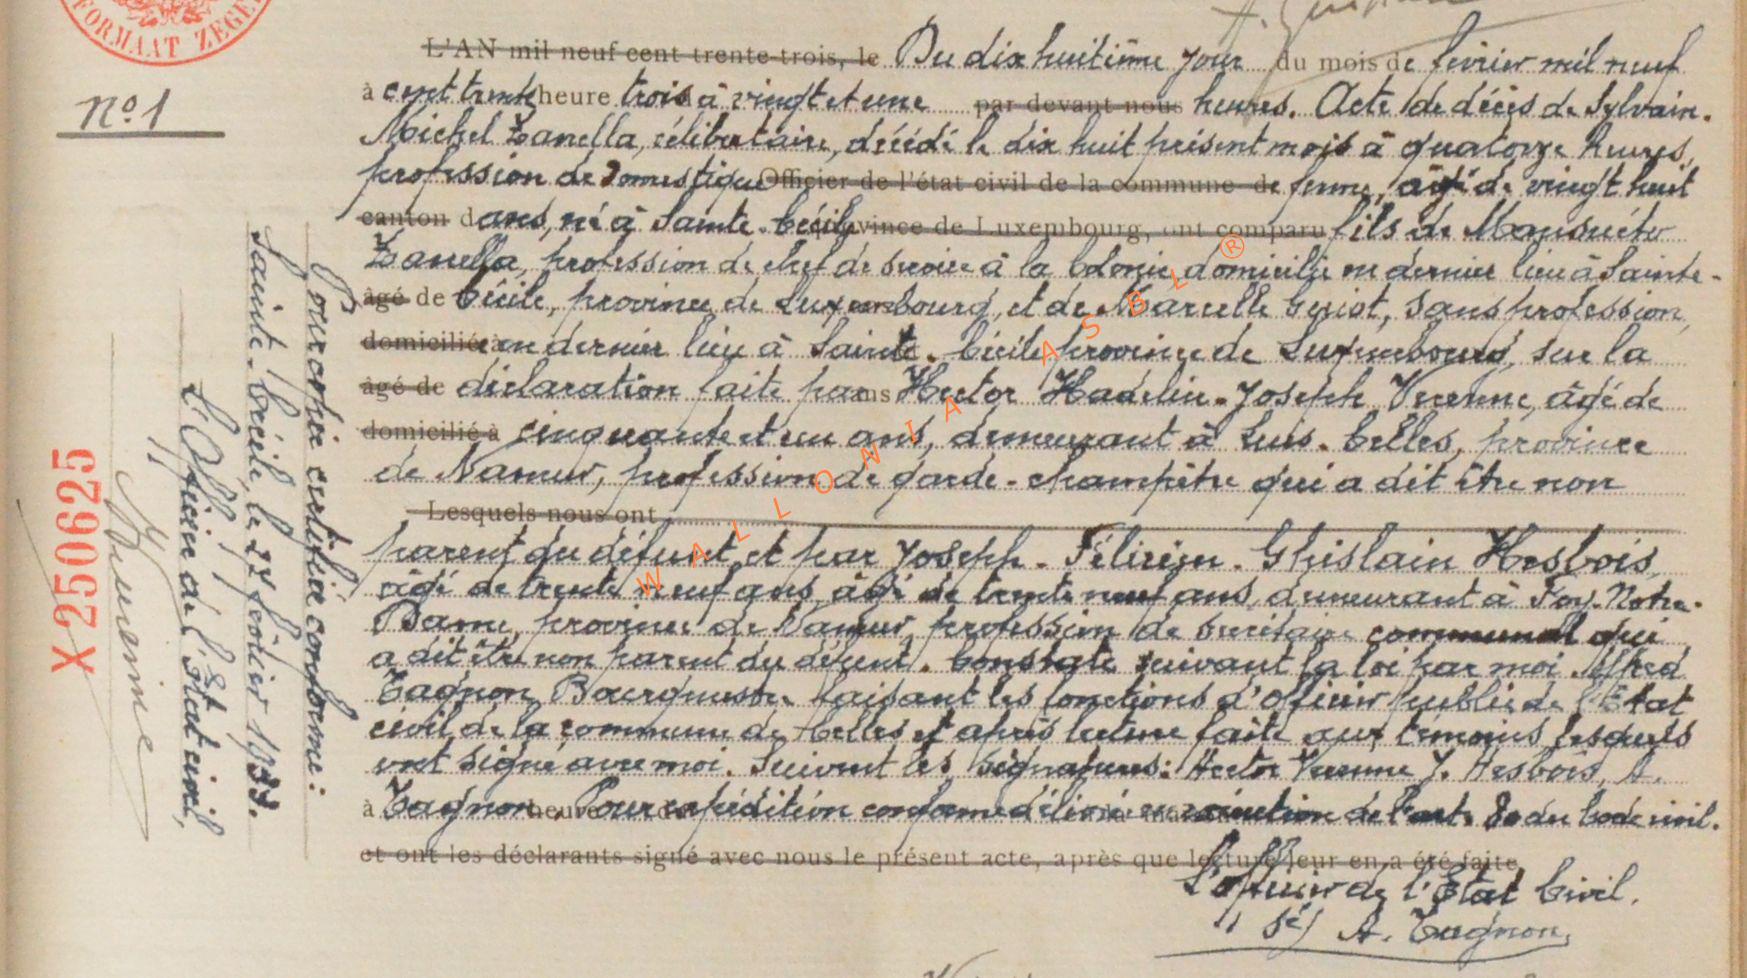 FORMAAT ZEGEL
nº 1
L'AN mil neuf cent trente-trois, le Du dix huitième jour du mois de février mil neuf
à cent trente heure trois à vingt et une par devant nous heures. Acte de décès de Sylvain.
Michel Zanella, célibataire, décédé le dix huit présent mois à quatorze heures,
profession de domestique Officier de l'état civil de la commune de ferme, âgé de vingt huit
canton d ans, né à Sainte-Cécile province de Luxembourg, ont comparu fils de Mansuéto
Zanella, profession de chef de service à la Colonie, domicilié en dernier lieu à Sainte-
âgé de Cécile, province de Luxembourg, et de Marcelle Guiot, sans profession,
domicilié à en dernier lieu à Sainte-Cécile province de Luxembourg, sur la
âgé de déclaration faite par ans Hector Hadelin-Joseph Vienne, âgé de
domicilié à cinquante et un ans, demeurant à Celles, province
de Namur, profession de garde-champêtre qui a dit être non
Lesquels nous ont
parent du défunt et par Joseph-Félicien-Ghislain Hesbois,
âgé de trente neuf ans, âgé de trente neuf ans, demeurant à Foy-Notre-
Dame, province de Namur, profession de secrétaire communal qui
a dit être non parent du défunt. Constaté suivant la loi par moi Alfred
Tagnon, Bourgmestre faisant les fonctions d'Officier public de l'Etat
civil de la commune de Celles et après lecture faite aux témoins lesquels
ont signé avec moi. Suivent les signatures: Hector Vienne J. Hesbois, A.
à Tagnon. heure Pour expédition conforme délivrée en exécution de l'art. 80 du Code civil.
et ont les déclarants signé avec nous le présent acte, après que lecture leur en a été faite
L'officier de l'Etat Civil.
(sé) A. Tagnon.
Pour copie certifiée conforme:
Sainte-Cécile, le 27 février 1933.
L'Officier de l'Etat civil,
X 250625
WALLONIA ASBL ®